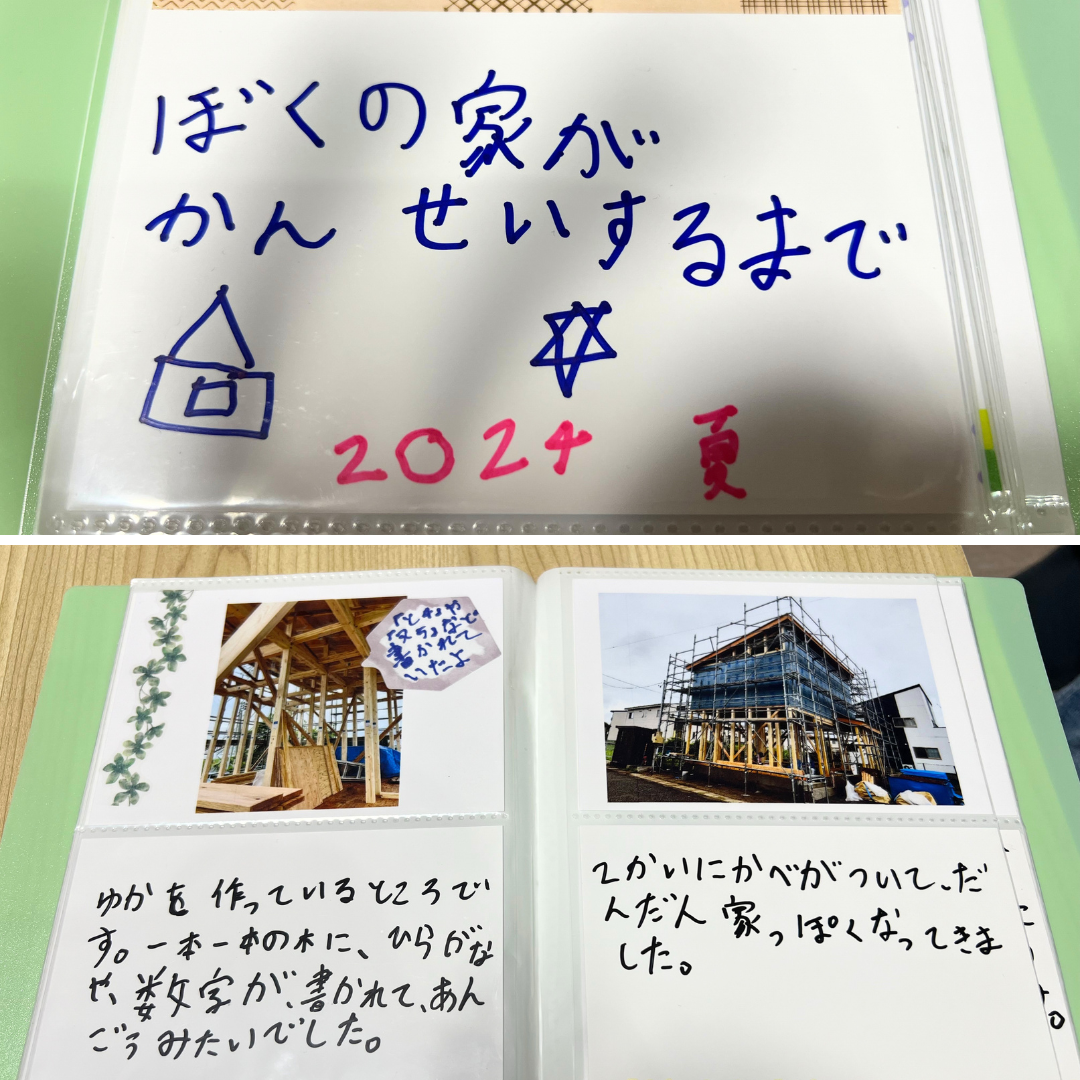 ぼくの家が
かんせいするまで
2024 夏
書かれて
いたよ
ゆかを作っているところで
す。一本一本の木に、ひらがな
や、数字が、書かれて、あん
ごうみたいでした。
2かいにかべがついて、だ
んだん家っぽくなってきま
した。